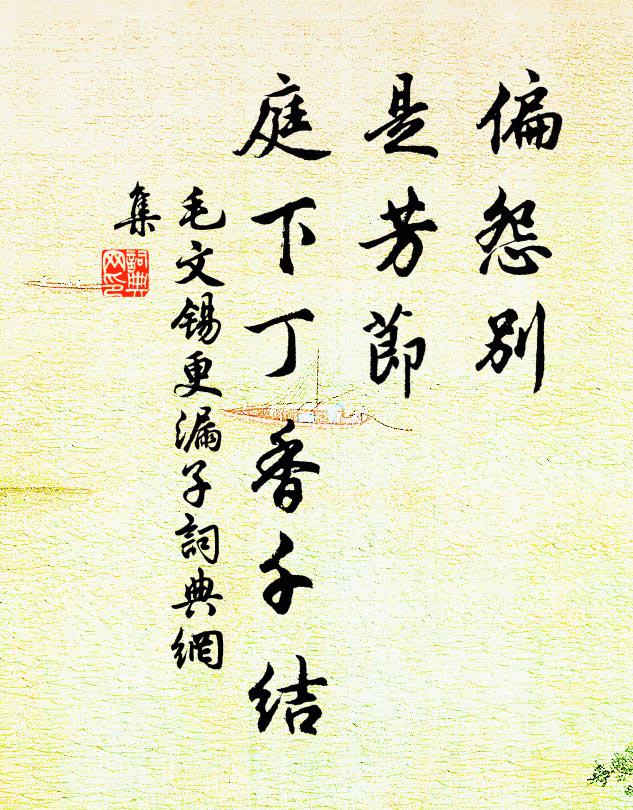 偏怨别
是芳節
庭下丁香千结
毛文锡更漏子詞典網
集
詞典
网印